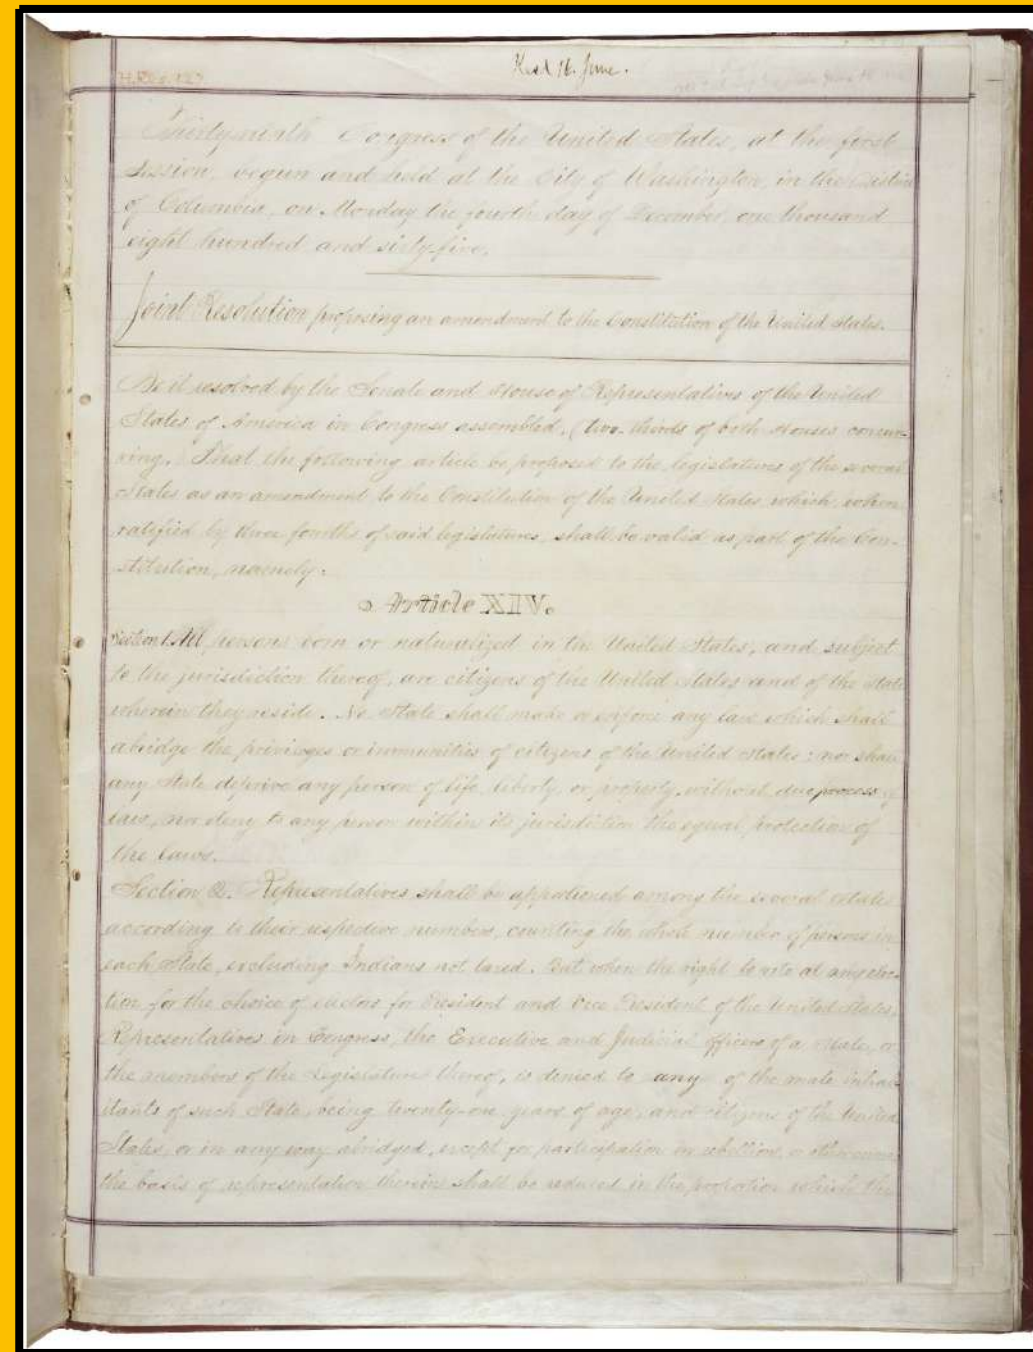 H.Res. 127
Recd 16. June.
Thirty-ninth Congress of the United States, at the first
Session, begun and held at the City of Washington, in the District
of Columbia, on Monday the fourth day of December, one thousand
eight hundred and sixty-five.
Joint Resolution proposing an amendment to the Constitution of the United States.
Be it resolved by the Senate and House of Representatives of the United
States of America in Congress assembled, (two-thirds of both Houses concur-
ring,) That the following article be proposed to the legislatures of the several
States as an amendment to the Constitution of the United States, which, when
ratified by three fourths of said legislatures, shall be valid as part of the Con-
stitution, namely:
Article XIV.
Section 1. All persons born or naturalized in the United States, and subject
to the jurisdiction thereof, are citizens of the United States and of the State
wherein they reside. No State shall make or enforce any law which shall
abridge the privileges or immunities of citizens of the United States; nor shall
any State deprive any person of life, liberty, or property, without due process of
law, nor deny to any person within its jurisdiction the equal protection of
the laws.
Section 2. Representatives shall be apportioned among the several States
according to their respective numbers, counting the whole number of persons in
each State, excluding Indians not taxed. But when the right to vote at any elec-
tion for the choice of electors for President and Vice President of the United States,
Representatives in Congress, the Executive and Judicial officers of a State, or
the members of the Legislature thereof, is denied to any of the male inhab-
itants of such State, being twenty-one years of age, and citizens of the United
States, or in any way abridged, except for participation in rebellion, or other crime,
the basis of representation therein shall be reduced in the proportion which the